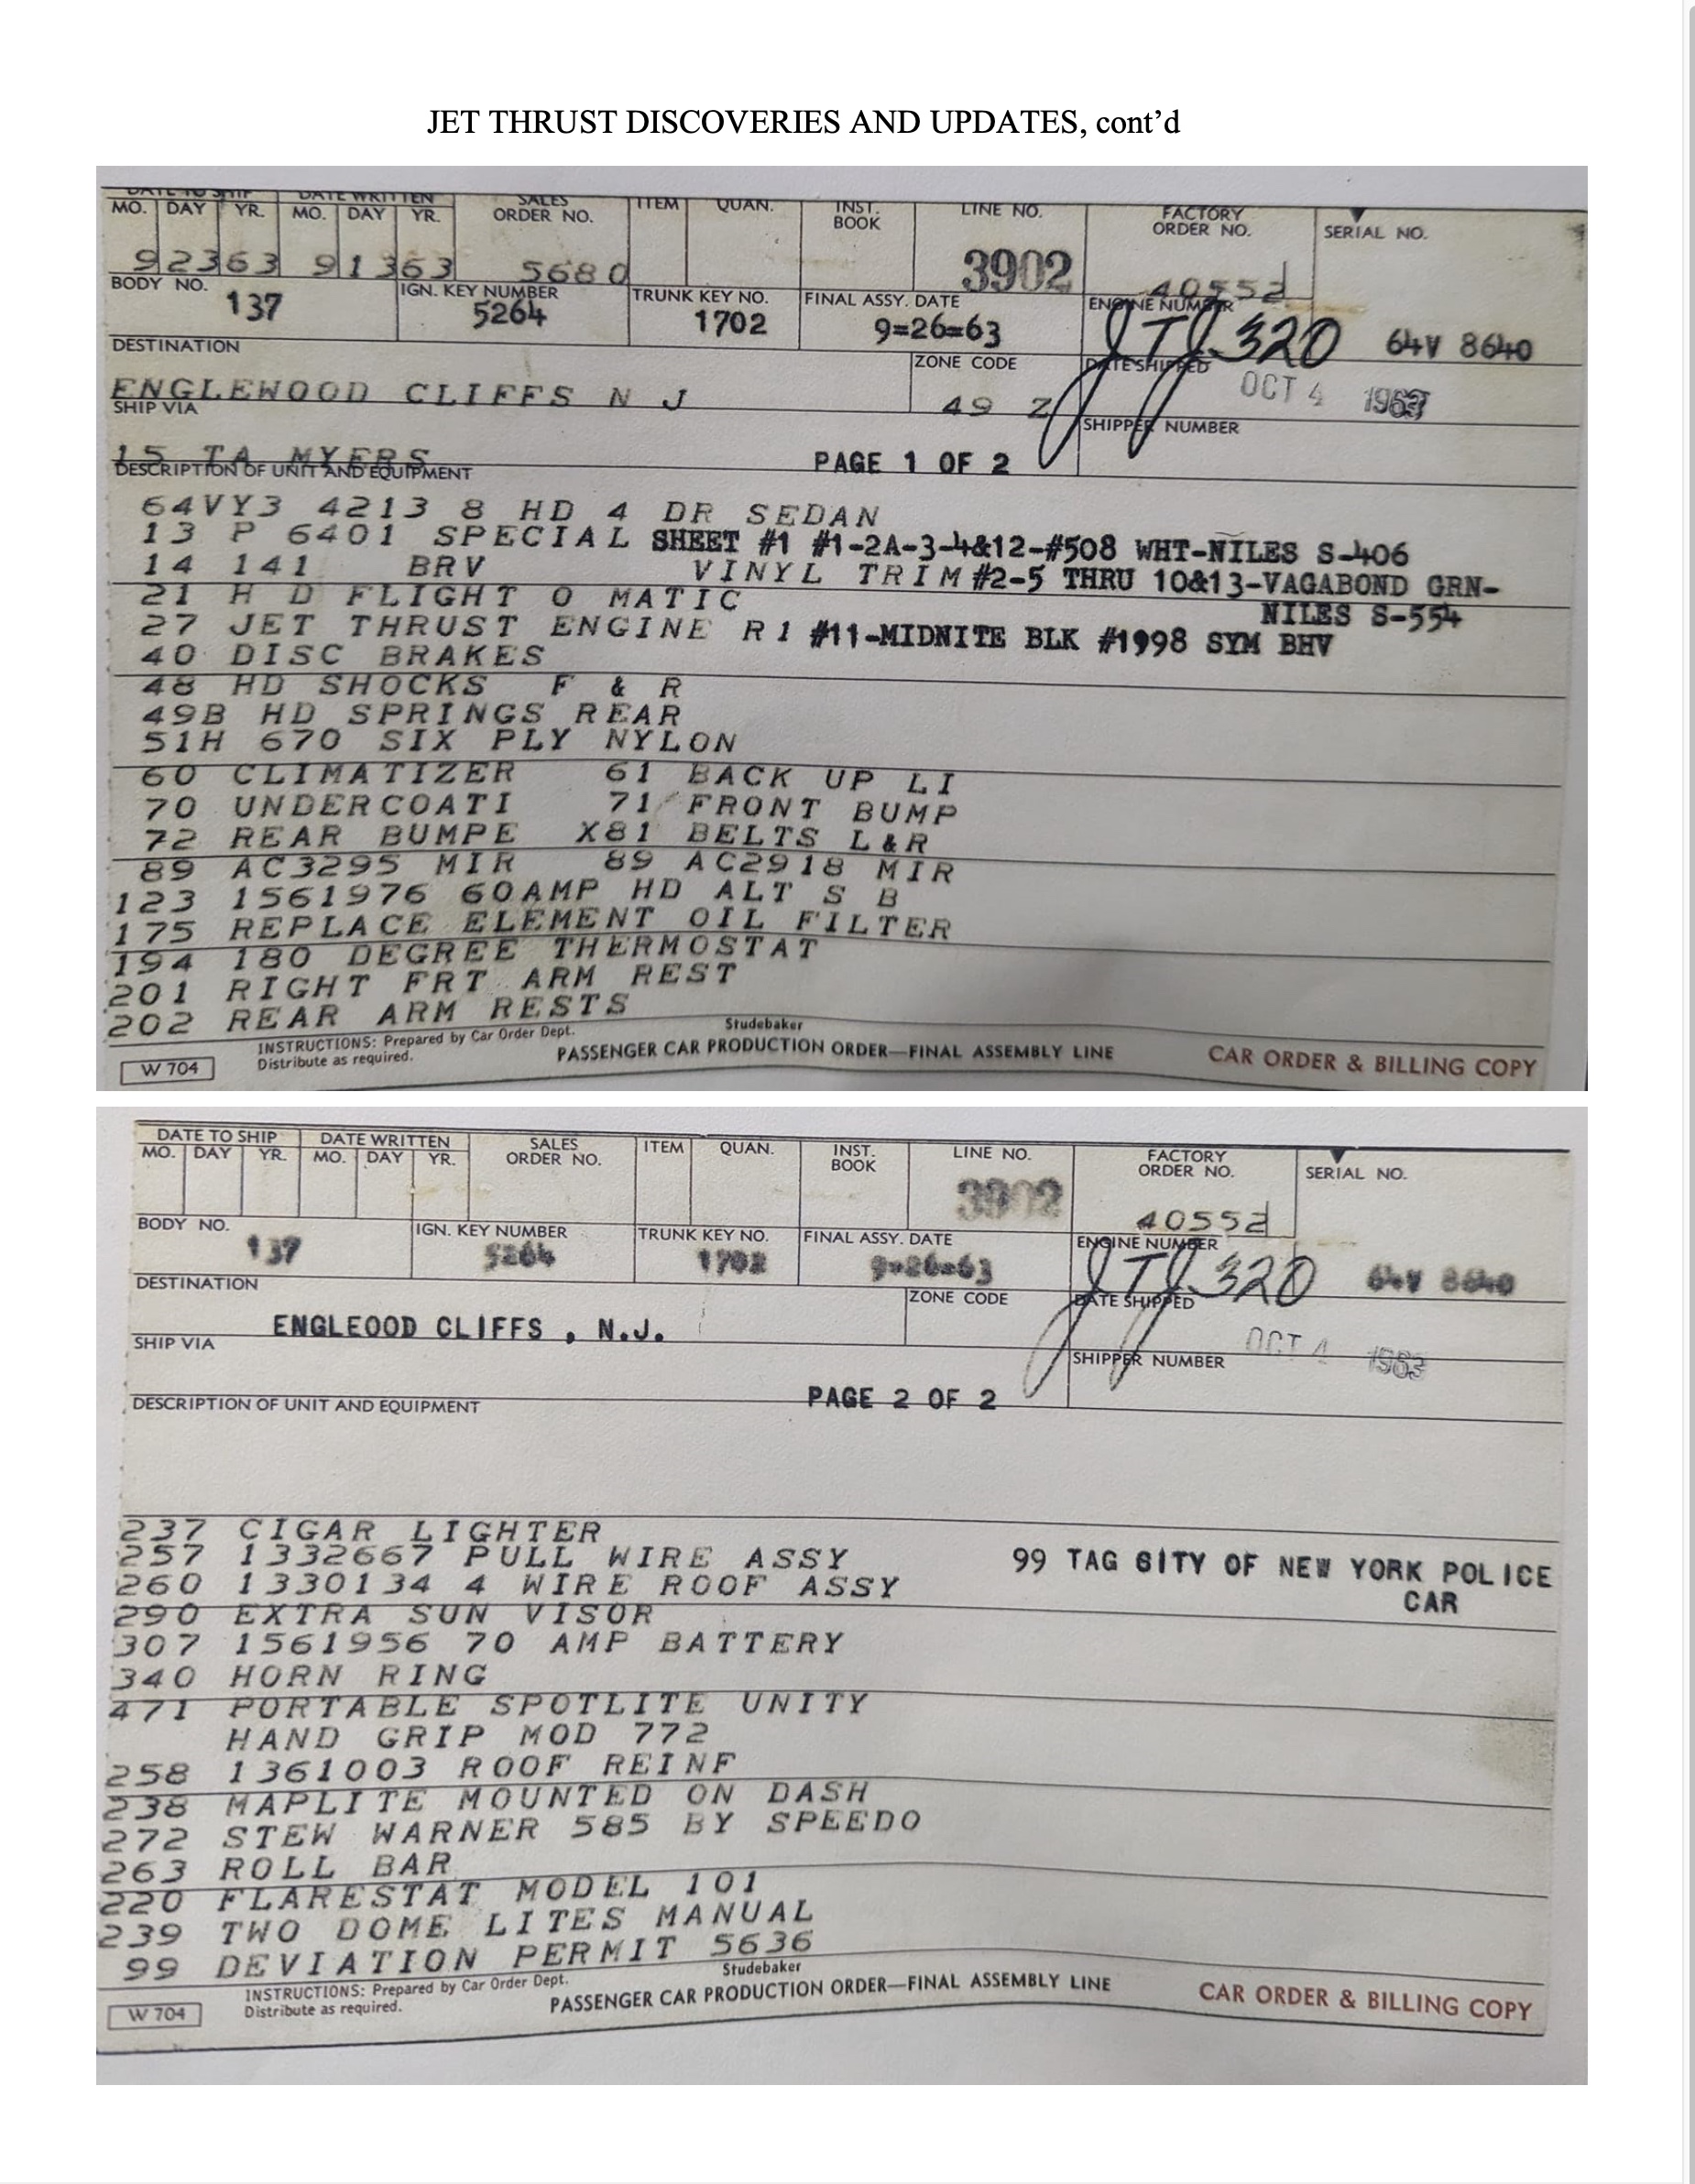 JET THRUST DISCOVERIES AND UPDATES, cont’d
DATE TO SHIP DATE WRITTEN SALES ORDER NO. ITEM QUAN. INST. BOOK LINE NO. FACTORY ORDER NO. SERIAL NO.
MO. DAY YR. MO. DAY YR.
9 23 63 9 13 63 5680 3902 40552
BODY NO. IGN. KEY NUMBER TRUNK KEY NO. FINAL ASSY. DATE ENGINE NUMBER
137 5264 1702 9=26=63 JTJ320 64V 8640
DESTINATION ZONE CODE DATE SHIPPED
ENGLEWOOD CLIFFS N J 49 Z OCT 4 1963
SHIP VIA SHIPPER NUMBER
15 TA MYERS PAGE 1 OF 2
DESCRIPTION OF UNIT AND EQUIPMENT
64VY3 4213 8 HD 4 DR SEDAN
13 P 6401 SPECIAL SHEET #1 #1-2A-3-4&12-#508 WHT-NILES S-406
14 141 BRV VINYL TRIM #2-5 THRU 10&13-VAGABOND GRN-
21 H D FLIGHT O MATIC NILES S-554
27 JET THRUST ENGINE R1 #11-MIDNITE BLK #1998 SYM BHV
40 DISC BRAKES
48 HD SHOCKS F & R
49B HD SPRINGS REAR
51H 670 SIX PLY NYLON
60 CLIMATIZER 61 BACK UP LI
70 UNDERCOATI 71 FRONT BUMP
72 REAR BUMPE X81 BELTS L&R
89 AC3295 MIR 89 AC2918 MIR
123 1561976 60AMP HD ALT S B
175 REPLACE ELEMENT OIL FILTER
194 180 DEGREE THERMOSTAT
201 RIGHT FRT ARM REST
202 REAR ARM RESTS
W 704 INSTRUCTIONS: Prepared by Car Order Dept. Distribute as required. Studebaker PASSENGER CAR PRODUCTION ORDER—FINAL ASSEMBLY LINE CAR ORDER & BILLING COPY
DATE TO SHIP DATE WRITTEN SALES ORDER NO. ITEM QUAN. INST. BOOK LINE NO. FACTORY ORDER NO. SERIAL NO.
MO. DAY YR. MO. DAY YR.
3902 40552
BODY NO. IGN. KEY NUMBER TRUNK KEY NO. FINAL ASSY. DATE ENGINE NUMBER
137 5264 1702 9=26=63 JTJ320 64V 8640
DESTINATION ZONE CODE DATE SHIPPED
ENGLEOOD CLIFFS , N.J. OCT 4 1963
SHIP VIA SHIPPER NUMBER
PAGE 2 OF 2
DESCRIPTION OF UNIT AND EQUIPMENT
237 CIGAR LIGHTER
257 1332667 PULL WIRE ASSY 99 TAG CITY OF NEW YORK POLICE
260 1330134 4 WIRE ROOF ASSY CAR
290 EXTRA SUN VISOR
307 1561956 70 AMP BATTERY
340 HORN RING
471 PORTABLE SPOTLITE UNITY
HAND GRIP MOD 772
258 1361003 ROOF REINF
238 MAPLITE MOUNTED ON DASH
272 STEW WARNER 585 BY SPEEDO
263 ROLL BAR
220 FLARESTAT MODEL 101
239 TWO DOME LITES MANUAL
99 DEVIATION PERMIT 5636
W 704 INSTRUCTIONS: Prepared by Car Order Dept. Distribute as required. Studebaker PASSENGER CAR PRODUCTION ORDER—FINAL ASSEMBLY LINE CAR ORDER & BILLING COPY